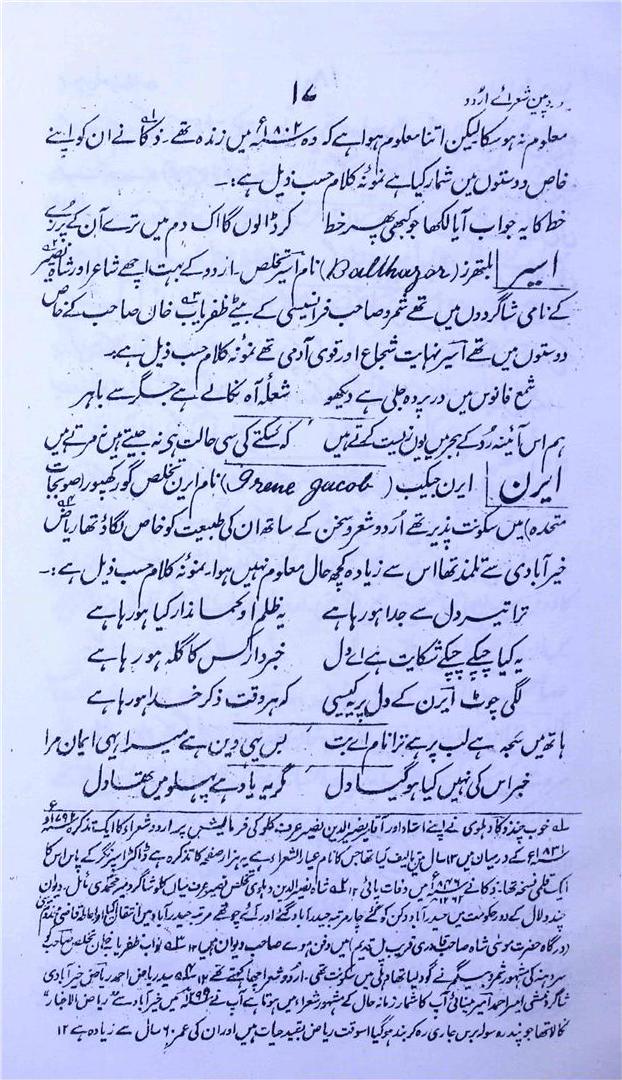 یورپین شعرائے اُردو
۱۷
معلوم نہ ہو سکا لیکن اتنا معلوم ہوا ہے کہ وہ ۱۸۰۲ء میں زندہ تھے۔ ذکا نے ان کو اپنے
خاص دوستوں میں شمار کیا ہے نمونہ کلام حسب ذیل ہے:۔
خط کا یہ جواب آیا لکھا جو کبھی پھر خط کر ڈالوں گا اک دم میں ترے آن کے پرزے
اسیر بلتھرز (Balthazar) نام اسیر تخلص۔ اردو کے بہت اچھے شاعر اور شاہ نصیر
کے نامی شاگردوں میں تھے شمرو صاحب فرانسیسی کے بیٹے ظفریاب خاں صاحب کے خاص
دوستوں میں تھے اسیر نہایت شجاع اور قوی آدمی تھے نمونہ کلام حسب ذیل ہے۔
شمع فانوس میں در پردہ جلی ہے دیکھو شعلۂ آہ نکالے ہے جگر سے باہر
ہم اس آئینہ رُو کے ہجر میں یوں زیست کرتے ہیں کہ سکتے کی سی حالت ہی نہ جیتے ہیں نہ مرتے ہیں
ایرن ایرن جیکب (Irene Jacob) نام ایرن تخلص گورکھپور (صوبجات
متحدہ) میں سکونت پذیر تھے اُردو شعر و سخن کے ساتھ ان کی طبیعت کو خاص لگاؤ تھا ریاض
خیرآبادی سے تلمذ تھا اس سے زیادہ کچھ حال معلوم نہیں ہوا۔ نمونہ کلام حسب ذیل ہے:۔
ترا تیر دل سے جدا ہو رہا ہے یہ ظلم او کماندار کیا ہو رہا ہے
یہ کیا چپکے چپکے شکایت ہے اے دل خبردار کس کا گلہ ہو رہا ہے
لگی چوٹ ایرن کے دل پر یہ کیسی کہ ہر وقت ذکر خدا ہو رہا ہے
ہاتھ میں سبحہ ہے لب پر ہے ترا نام اے بت بس یہی دین ہے میرا یہی ایمان مرا
خبر اس کی نہیں کیا ہو گیا دل مگر یہ یاد ہے پہلو میں تھا دل
۱؎ خوب چند ذکا دہلوی نے اپنے استاد اور آقا میر نصیر الدین نصیر عرف کلو کی فرمائیش پر اردو شعراء کا ایک تذکرہ ۱۷۹۲ء و
۱۸۳۱ء کے درمیان میں ۱۳ سال میں تالیف کیا تھا جس کا نام عیار الشعراء ہے یہ ہزار صفحہ کا تذکرہ ہے ڈاکٹر اسپرنگر کے پاس اس کا
ایک قلمی نسخہ تھا۔ ذکا نے ۱۸۴۶ء میں وفات پائی ۱۲ ۲؎ شاہ نصیر الدین دہلوی تخلص نصیر عرف میاں کلو شاگرد میر محمدی مائل۔ دیوان
چندو لال کے دور حکومت میں حیدرآباد دکن کو گئے چار مرتبہ حیدرآباد گئے اور کے چوتھے مرتبہ حیدرآباد میں انتقال کیا اور احاطہ قاضی مخدوم
(درگاہ حضرت موسی شاہ صاحب قادری قریب پل قدیم) میں دفن ہوے صاحب دیوان ہیں ۱۲ ۳؎ نواب ظفریاب خان تخلص صاحب کے
سردھنہ کی مشہور ثمرو بیگم نے گود لیا تھا دہلی میں سکونت تھی۔ اردو شعر اچھا کہتے تھے ۱۲ ۴؎ سید ریاض احمد ریاض خیرآبادی
شاگرد منشی امیر احمد امیر مینائی آپ کا شمار زمانہ حال کے مشہور شعرا میں ہوتا ہے آپ نے میں خیرآباد سے "ریاض الاخبار"
نکالا تھا جو پندرہ سولہ برس جاری رہ کر بند ہو گیا اسوقت ریاض بقید حیات ہیں اور ان کی عمر ۶۰ سال سے زیادہ ہے ۱۲